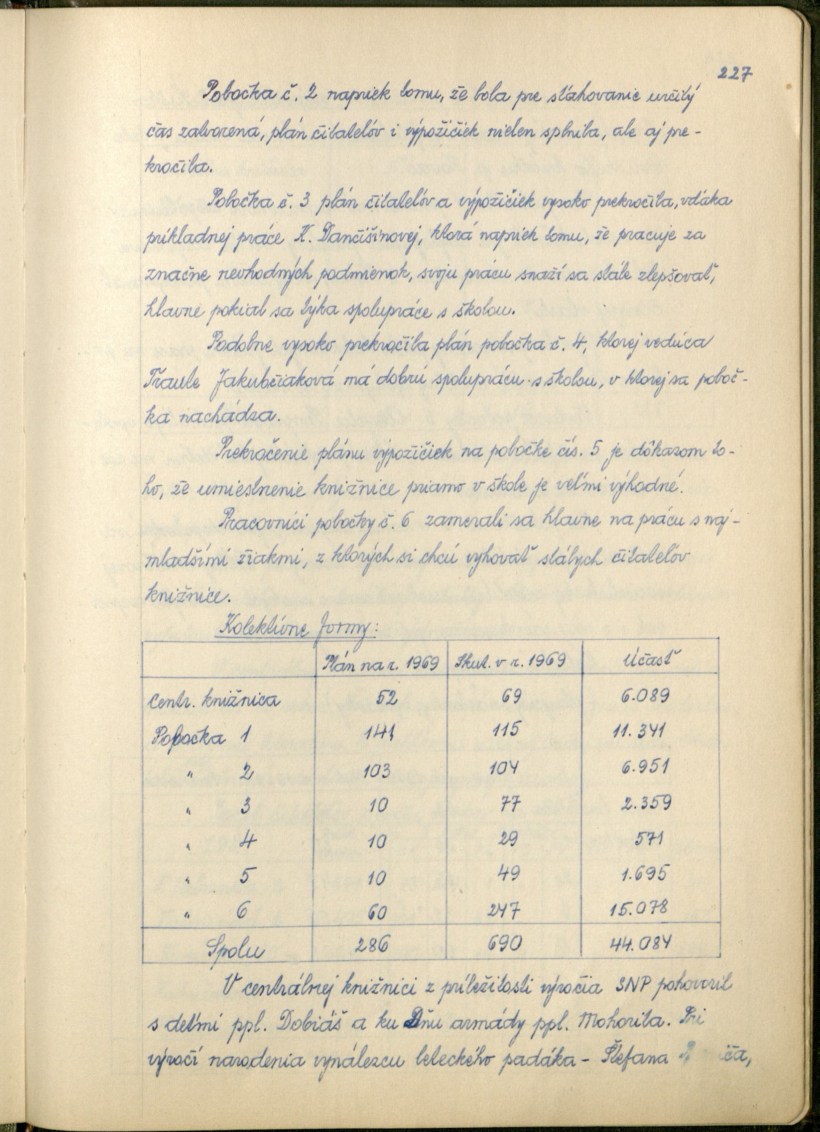 227
Pobočka č. 2 napriek tomu, že bola pre sťahovanie určitý
čas zatvorená, plán čitateľov i výpožičiek nielen splnila, ale aj pre-
kročila.
Pobočka č. 3 plán čitateľov a výpožičiek vysoko prekročila, vďaka
príkladnej práce K. Dančišinovej, ktorá napriek tomu, že pracuje za
značne nevhodných podmienok, svoju prácu snaží sa stále zlepšovať,
hlavne pokiaľ sa týka spolupráce s školou.
Podobne vysoko prekročila plán pobočka č. 4, ktorej vedúca
Traute Jakubčiaková má dobrú spoluprácu s školou, v ktorej sa poboč-
ka nachádza.
Prekročenie plánu výpožičiek na pobočke čís. 5 je dôkazom to-
ho, že umiestnenie knižnice priamo v škole je veľmi výhodné.
Pracovníci pobočky č. 6 zamerali sa hlavne na prácu s naj-
mladšími žiakmi, z ktorých si chcú vyhovať stálych čitateľov
knižnice.
Kolektívne formy:
Plán na r. 1969 Skut. v r. 1969 Účasť
Centr. knižnica 52 69 6.089
Pobočka 1 141 115 11.341
" 2 103 104 6.951
" 3 10 77 2.359
" 4 10 29 571
" 5 10 49 1.695
" 6 60 247 15.078
Spolu 286 690 44.084
V centrálnej knižnici z príležitosti výročia SNP pohovoril
s deťmi ppl. Dobiáš a ku Dňu armády ppl. Mohorita. Pri
výročí narodenia vynálezcu leteckého padáka – Štefana